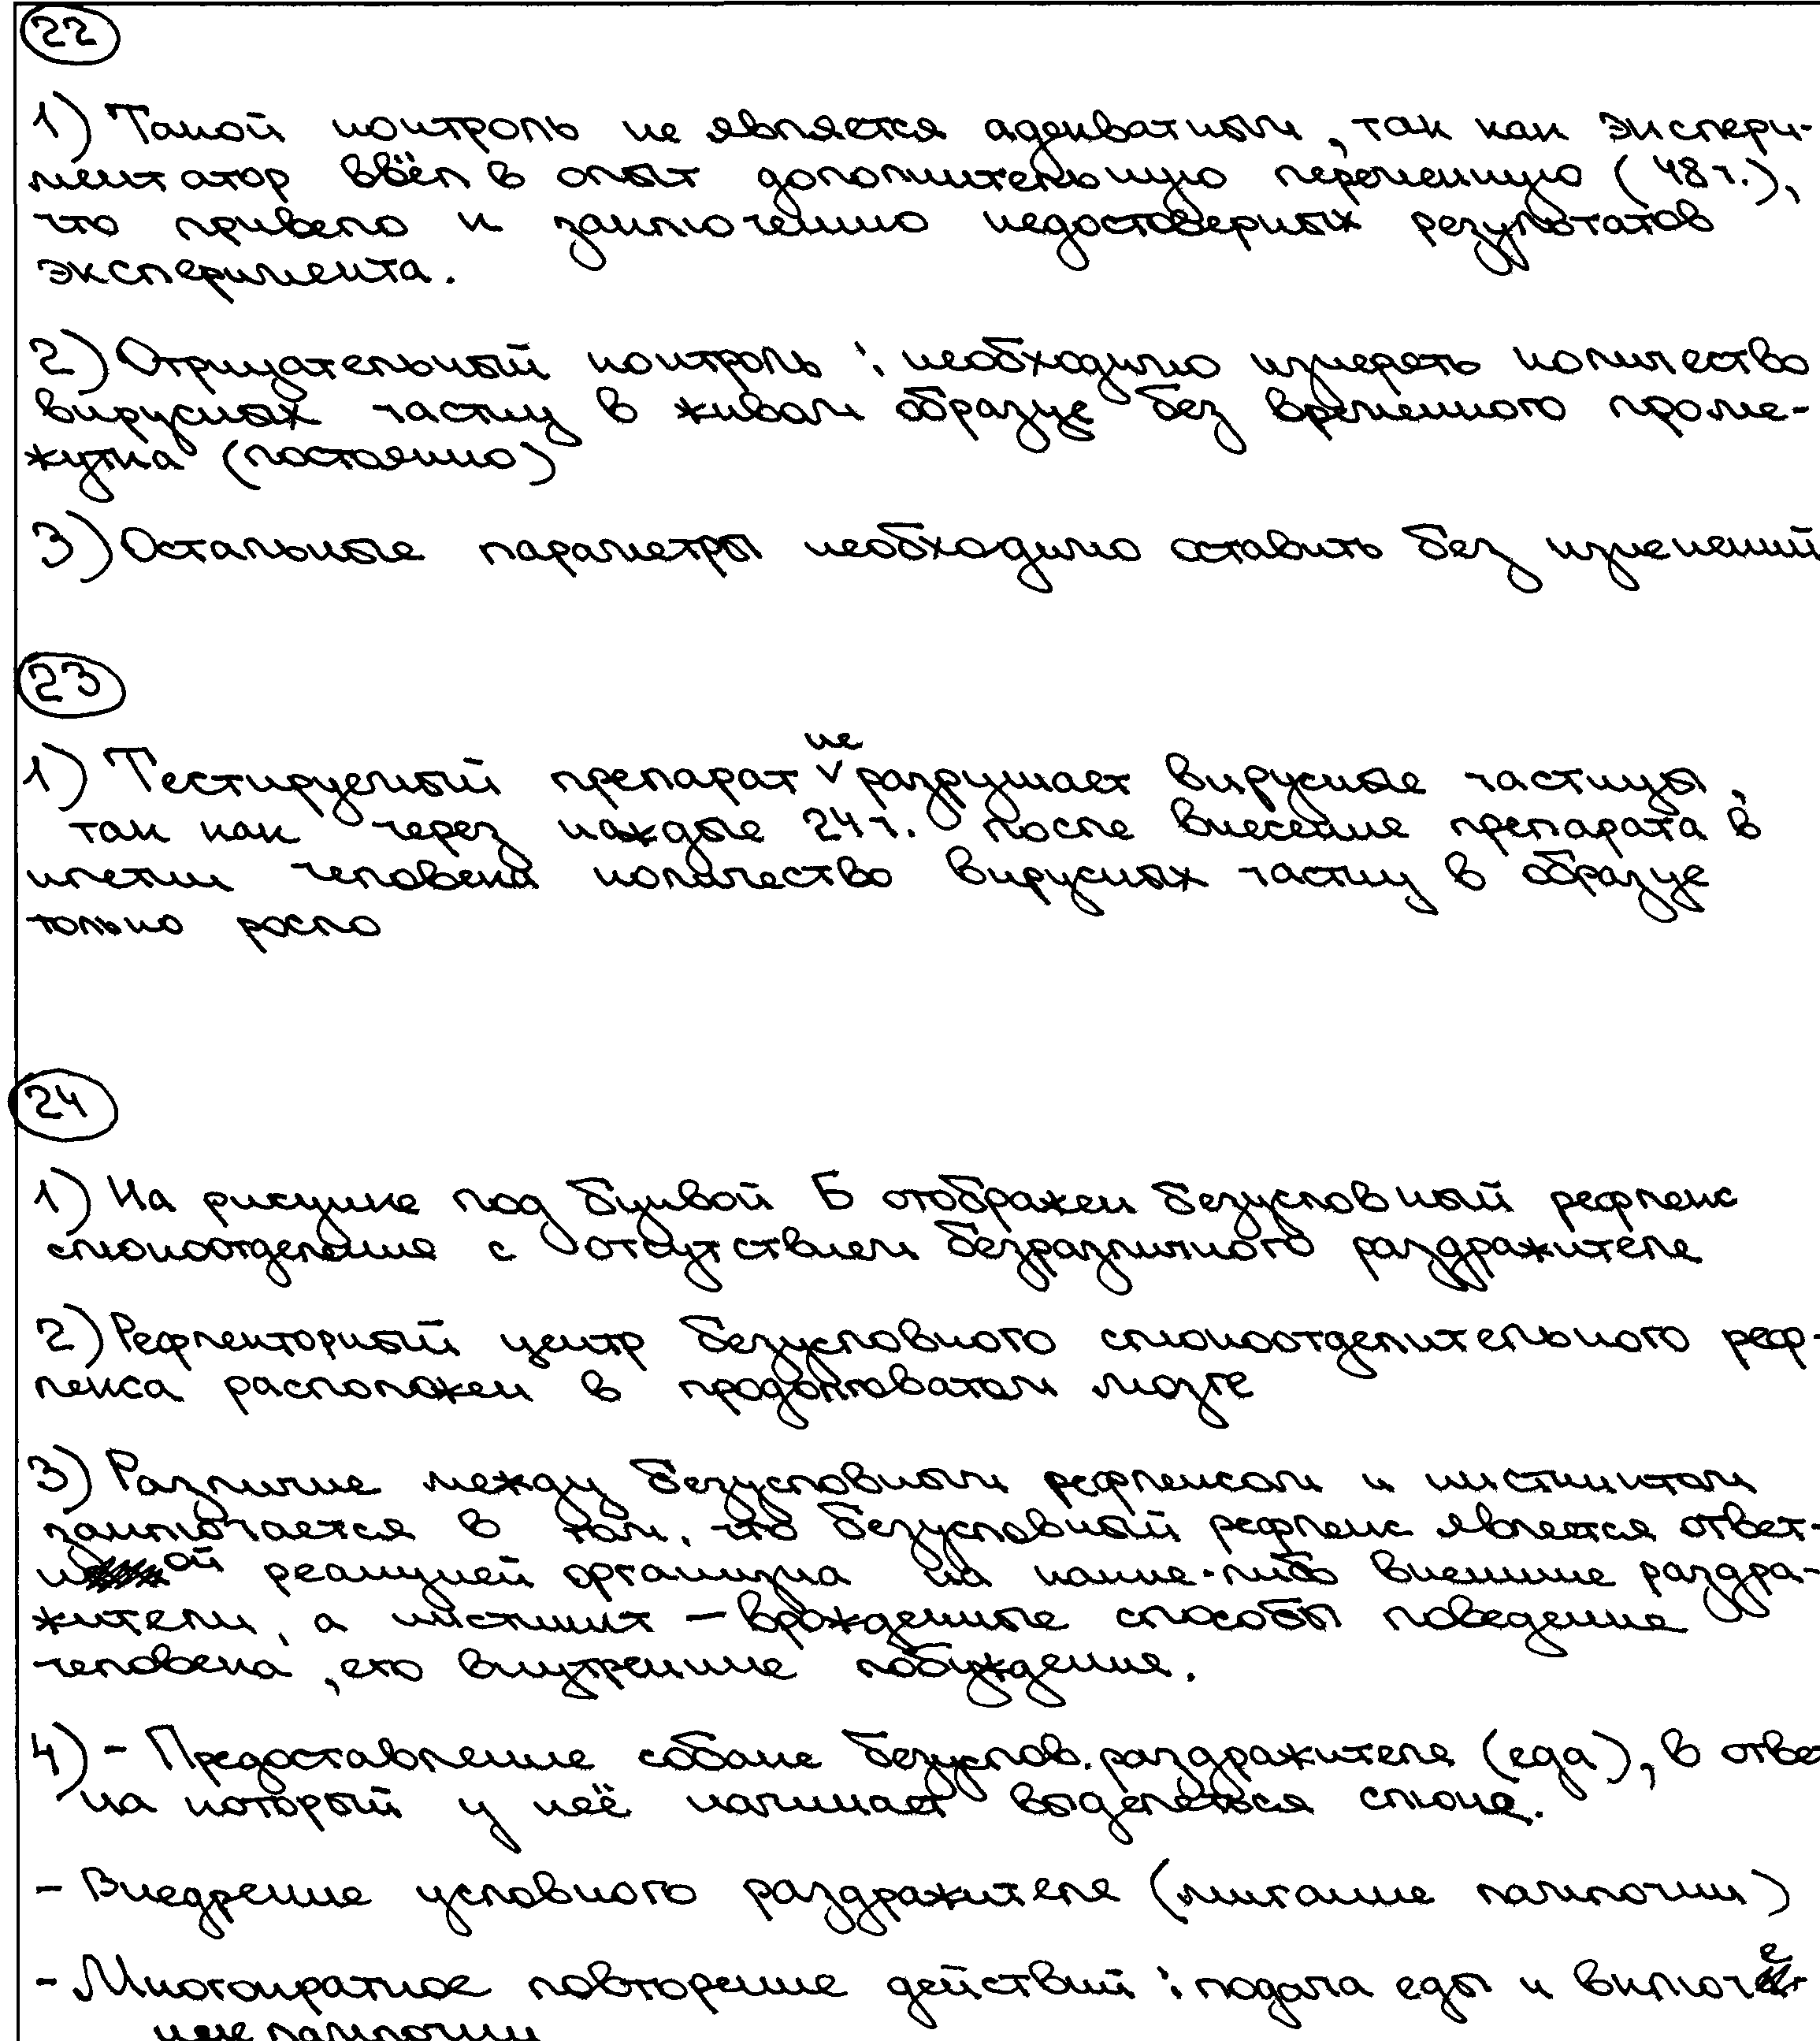 22
1) Такой контроль не является адекватным, так как экспери-
ментатор ввёл в опыт дополнительную переменную (48 ч.),
что привело к заключению недостоверных результатов
эксперимента.
2) Отрицательный контроль: необходимо измерять количество
вирусных частиц в живом образце без временного проме-
жутка (постоянно)
3) Остальные параметры необходимо оставить без изменений
23
1) Тестируемый препарат не разрушает вирусные частицы,
так как через каждые 24 ч. после внесения препарата в
клетки человека количество вирусных частиц в образце
только росло
24
1) На рисунке под буквой Б отображен безусловный рефлекс
слюноотделения с отсутствием безразличного раздражителя
2) Рефлекторный центр безусловного слюноотделительного реф-
лекса расположен в продолговатом мозге
3) Различие между безусловным рефлексом и инстинктом
заключается в том, что безусловный рефлекс является ответ-
ной реакцией организма на какие-либо внешние раздра-
жители, а инстинкт – врожденные способы поведения
человека, его внутренние побуждения.
4) - Предоставление собаке безуслов. раздражителя (еда), в отве
на который у неё начинает выделяться слюна.
- Внедрение условного раздражителя (мигание лампочки)
- Многократное повторение действий: подача еды и включе-
ние лампочки